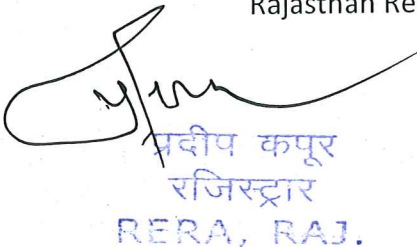 Rajasthan Re
प्रदीप कपूर
रजिस्ट्रार
RERA, RAJ.